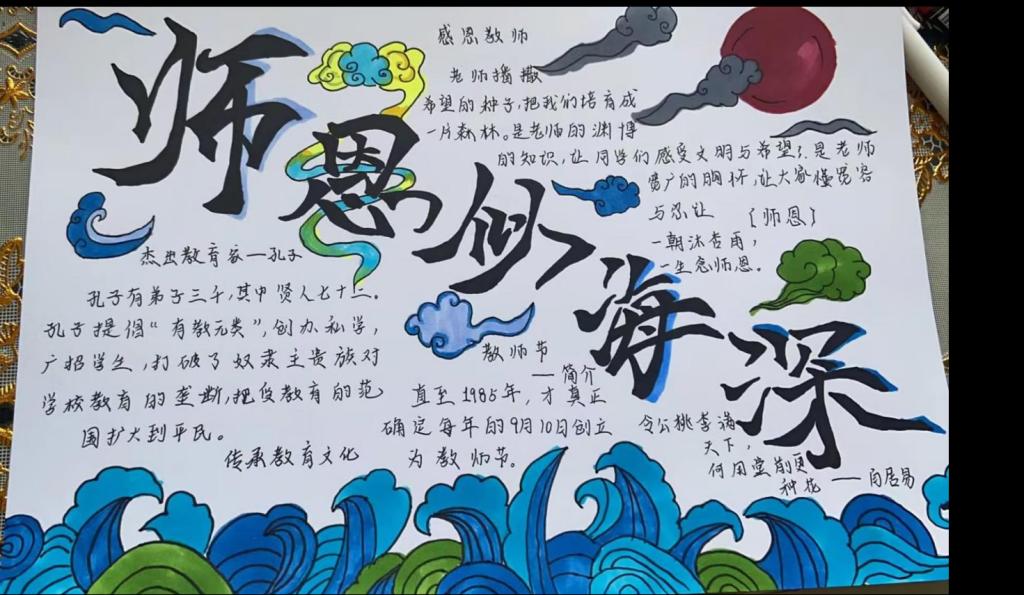 师恩似海深
感恩教师
老师播撒
希望的种子,把我们培育成
一片森林。是老师的渊博
的知识,让同学们感受文明与希望;是老师
宽广的胸怀,让大家懂宽容
与忍让
〔师恩〕
一朝沐杏雨,
一生念师恩。
杰出教育家—孔子
孔子有弟子三千,其中贤人七十二。
孔子提倡“有教无类”,创办私学,
广招学生,打破了奴隶主贵族对
学校教育的垄断,把受教育的范
围扩大到平民。
传承教育文化
教师节
—简介
直至1985年,才真正
确定每年的9月10日创立
为教师节。
令公桃李满
天下,
何用堂前更
种花——白居易